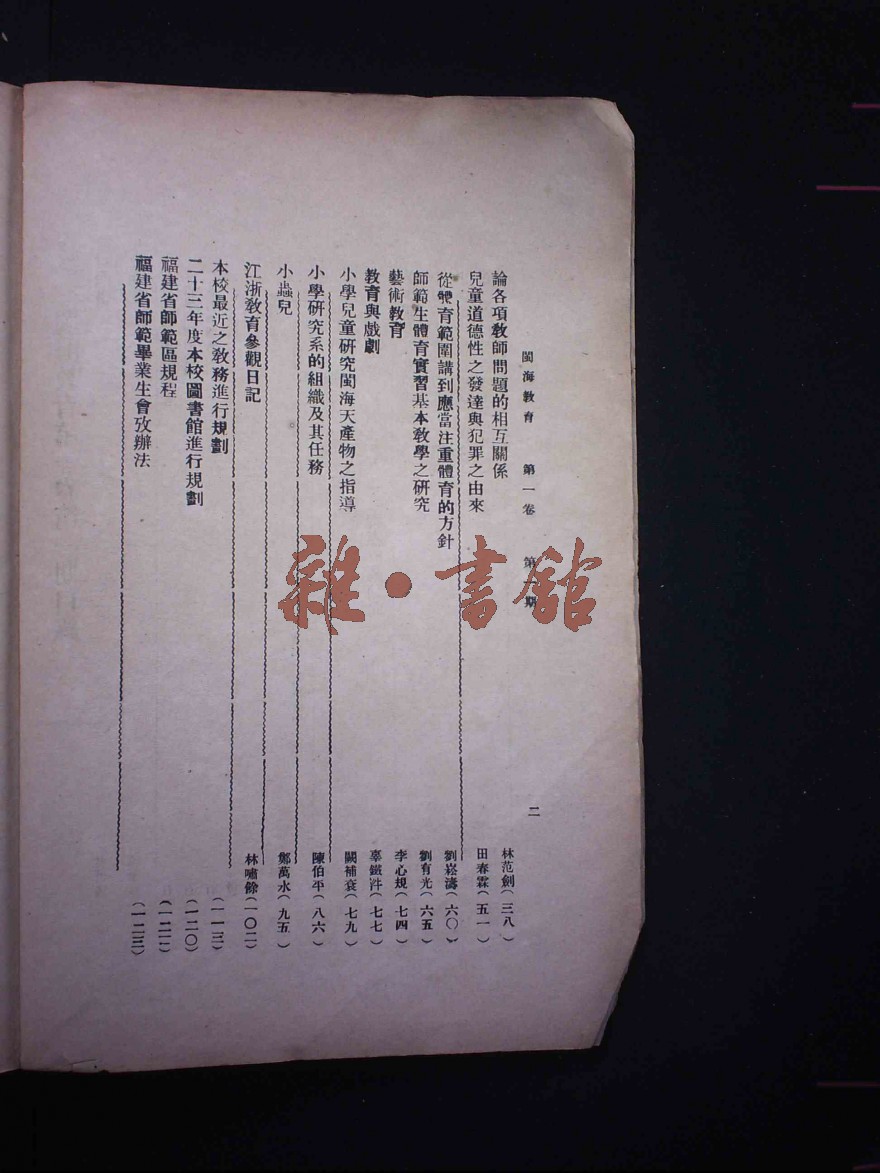 閩海教育　第一卷　第一期　二
論各項教師問題的相互關係　林范劍（三八）
兒童道德性之發達與犯罪之由來　田春霖（五一）
從體育範圍講到應當注重體育的方針　劉崧濤（六〇）
師範生體育實習基本教學之研究　劉有光（六五）
藝術教育　李心規（七四）
教育與戲劇　辜鐵（七七）
小學兒童研究閩海天產物之指導　闕補袞（七九）
小學研究系的組織及其任務　陳伯平（八六）
小蟲兒　鄭萬水（九五）
江浙教育參觀日記　林嘯餘（一〇二）
本校最近之教務進行規劃　（一一三）
二十三年度本校圖書館進行規劃　（一二〇）
福建省師範區規程　（一二二）
福建省師範畢業生會攷辦法　（一二三）
雜·書館